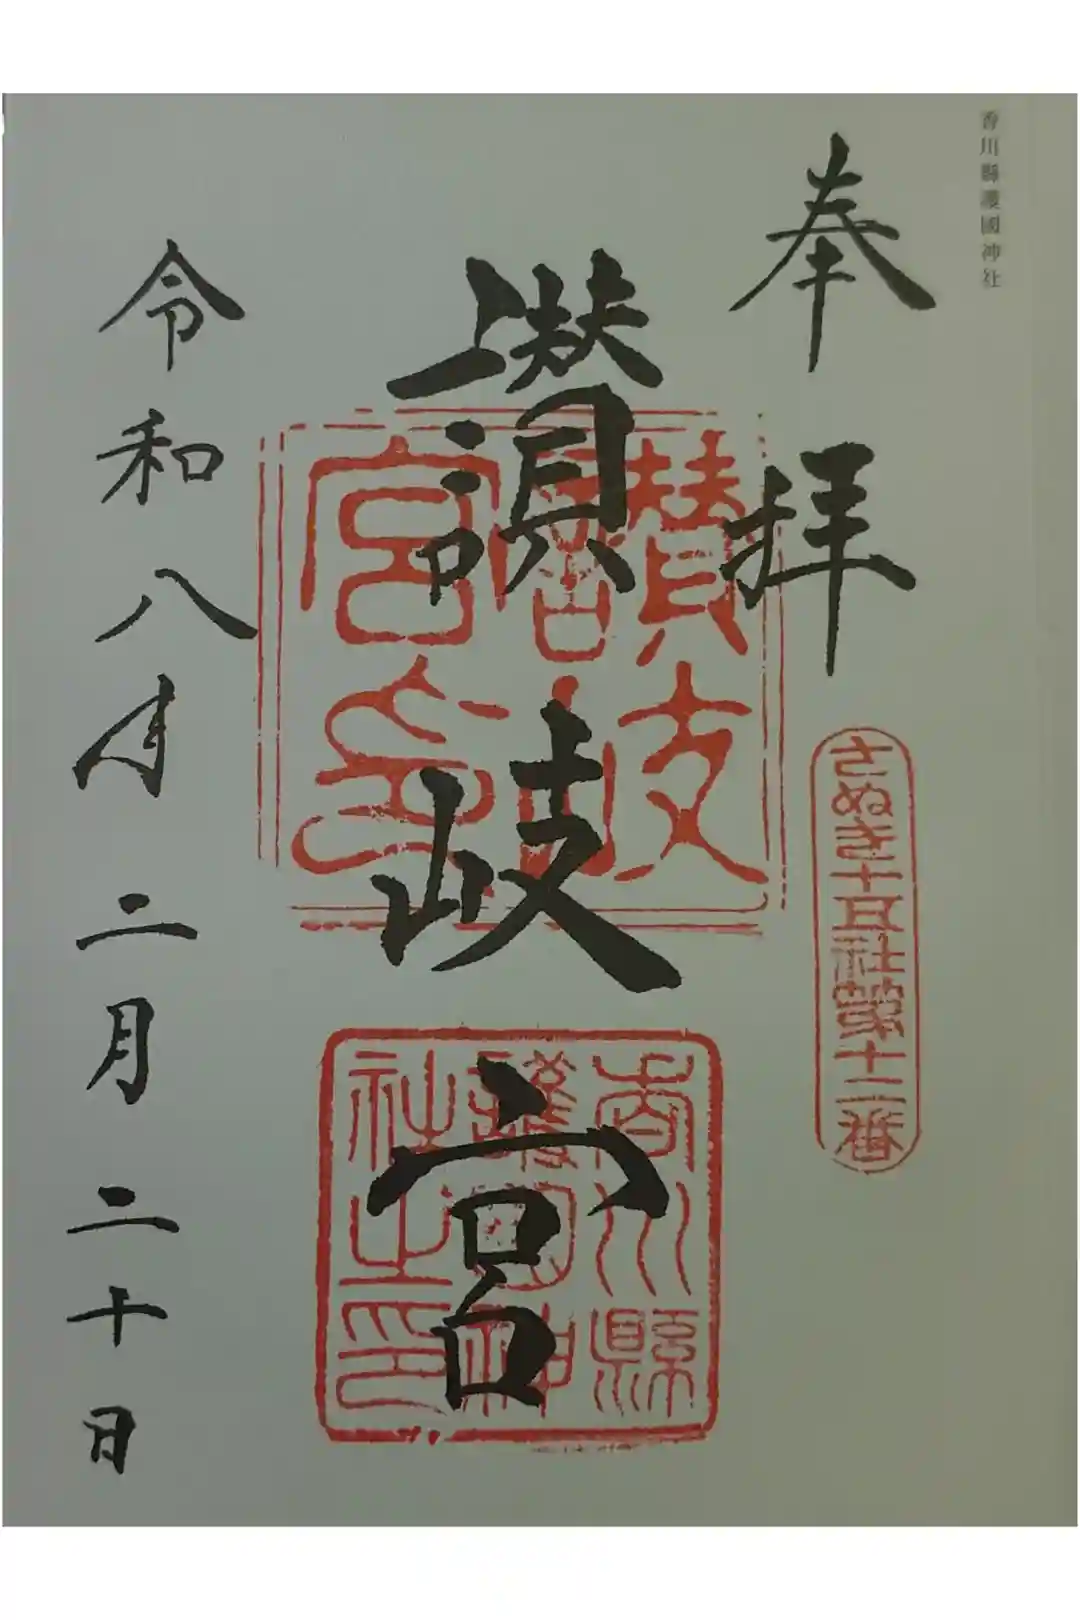 香川縣護國神社
奉拝
さぬき十五社第十二番
讃岐宮
讃岐宮印
香川縣護國神社之印
令和八年二月二十日